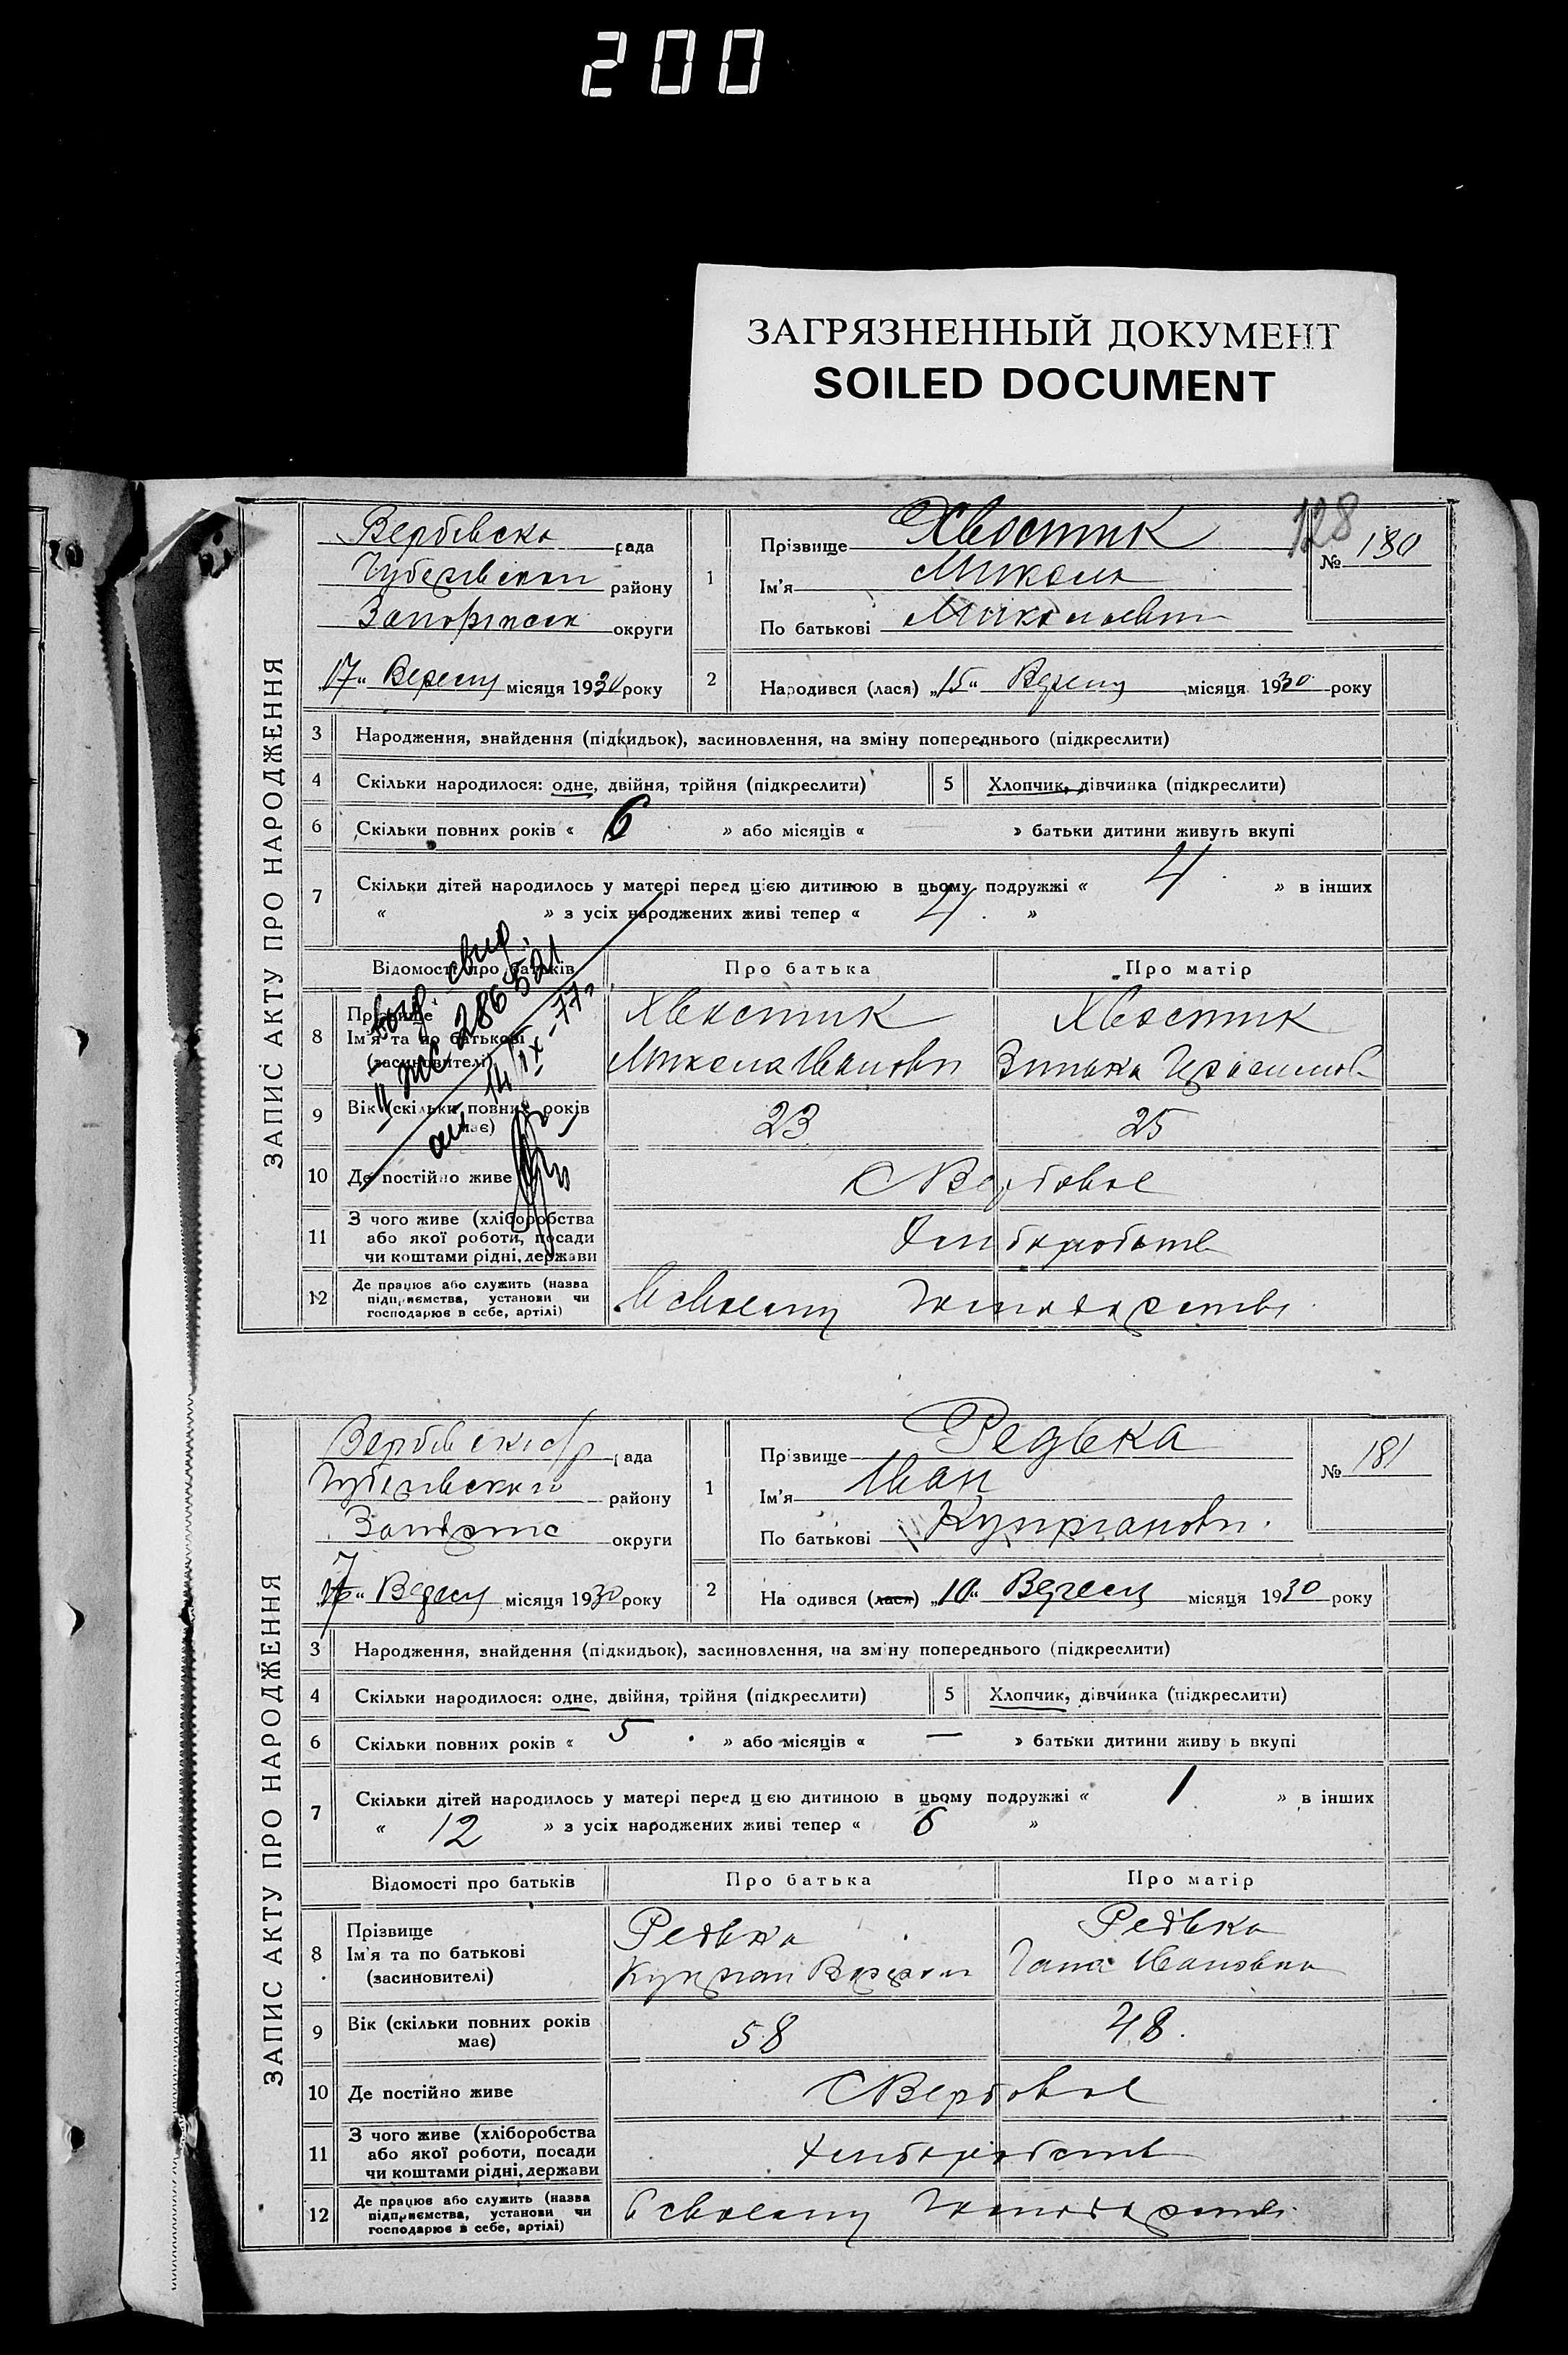 200
ЗАГРЯЗНЕННЫЙ ДОКУМЕНТ
SOILED DOCUMENT
128
ЗАПИС АКТУ ПРО НАРОДЖЕННЯ
Вербівська рада
району
округи
„17“ Вересня місяця 1930 року
1
Прізвище Хвостик
Ім'я Микола
По батькові Миколаевич
№ 180
2
Народився (лася) „15“ Вересня місяця 1930 року
3 Народження, знайдення (підкидьок), засиновлення, на зміну попереднього (підкреслити)
4 Скільки народилося: одне, двійня, трійня (підкреслити)
5 Хлопчик, дівчинка (підкреслити)
6 Скільки повних років « 6 » або місяців « — » батьки дитини живуть вкупі
7 Скільки дітей народилось у матері перед цією дитиною в цьому подружжі « 4 » в інших
« » з усіх народжених живі тепер « 4 »
Відомості про батьків
Про батька
Про матір
286521
14/IX-77
8 Прізвище
Ім'я та по батькові
(засиновителі)
Хвостик
Микола Іванови
Хвостик
9 Вік (скільки повних років має)
23
25
10 Де постійно живе
С Вербове
11 З чого живе (хліборобства
або якої роботи, посади
чи коштами рідні, держави
12 Де працює або служить (назва
підприємства, установи чи
господарює в себе, артілі)
ЗАПИС АКТУ ПРО НАРОДЖЕННЯ
рада
району
округи
„17“ Вересня місяця 1930 року
1
Прізвище Редька
Ім'я Иван
По батькові Купріянови
№ 181
2
На одився (лася) „10“ Вересня місяця 1930 року
3 Народження, знайдення (підкидьок), засиновлення, на зміну попереднього (підкреслити)
4 Скільки народилося: одне, двійня, трійня (підкреслити)
5 Хлопчик, дівчинка (підкреслити)
6 Скільки повних років « 5 » або місяців « — » батьки дитини живу ь вкупі
7 Скільки дітей народилось у матері перед цією дитиною в цьому подружжі « 1 » в інших
« 12 » з усіх народжених живі тепер « 6 »
Відомості про батьків
Про батька
Про матір
8 Прізвище
Ім'я та по батькові
(засиновителі)
Редька
Купріян
Редька
Гана Ивановна
9 Вік (скільки повних років має)
58
48
10 Де постійно живе
С Вербовое
11 З чого живе (хліборобства
або якої роботи, посади
чи коштами рідні, держави
12 Де працює або служить (назва
підприємства, установи чи
господарює в себе, артілі)